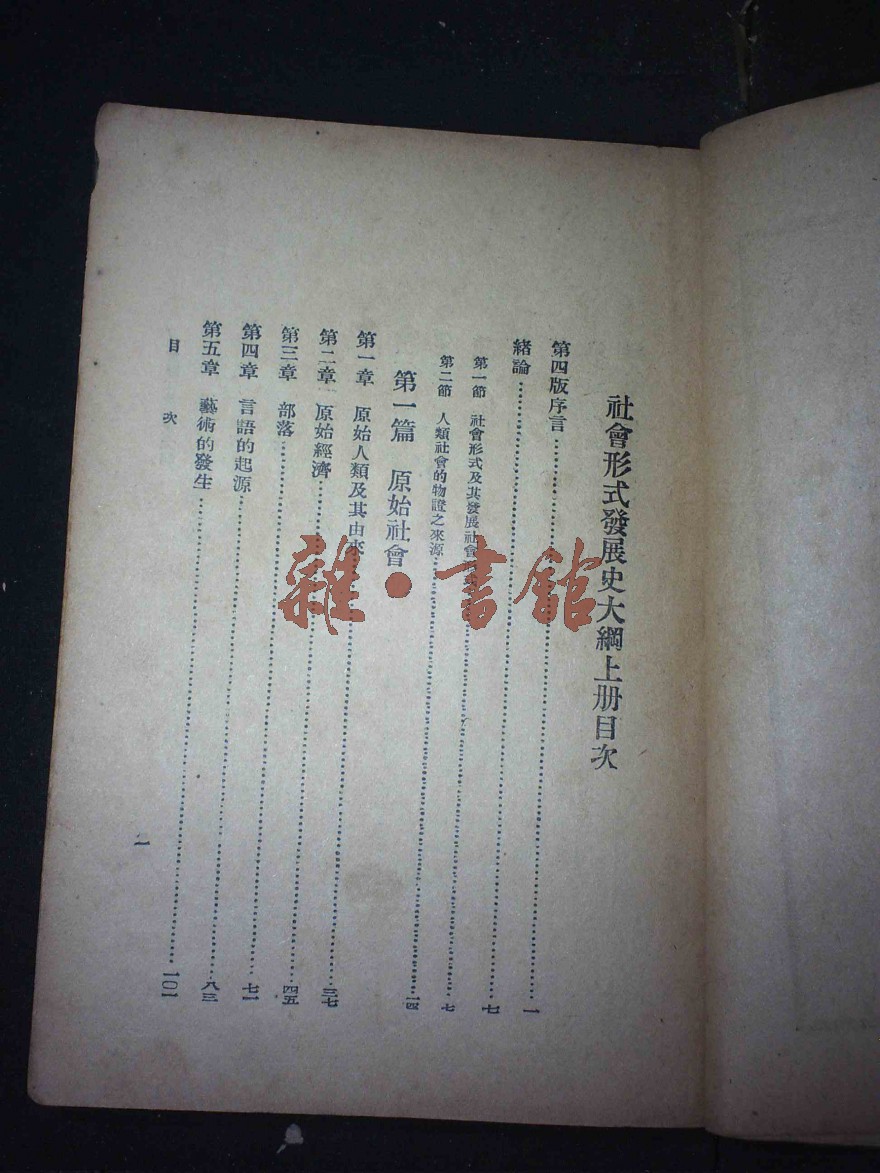 社會形式發展史大綱上册目次
第四版序言……一
緒論……七
第一節 社會形式及其發展社會……七
第二節 人類社會的物證之來源……一四
第一篇 原始社會
第一章 原始人類及其由來……三七
第二章 原始經濟……四五
第三章 部落……七一
第四章 言語的起源……八三
第五章 藝術的發生……一〇一
目 次
一
雜·書館